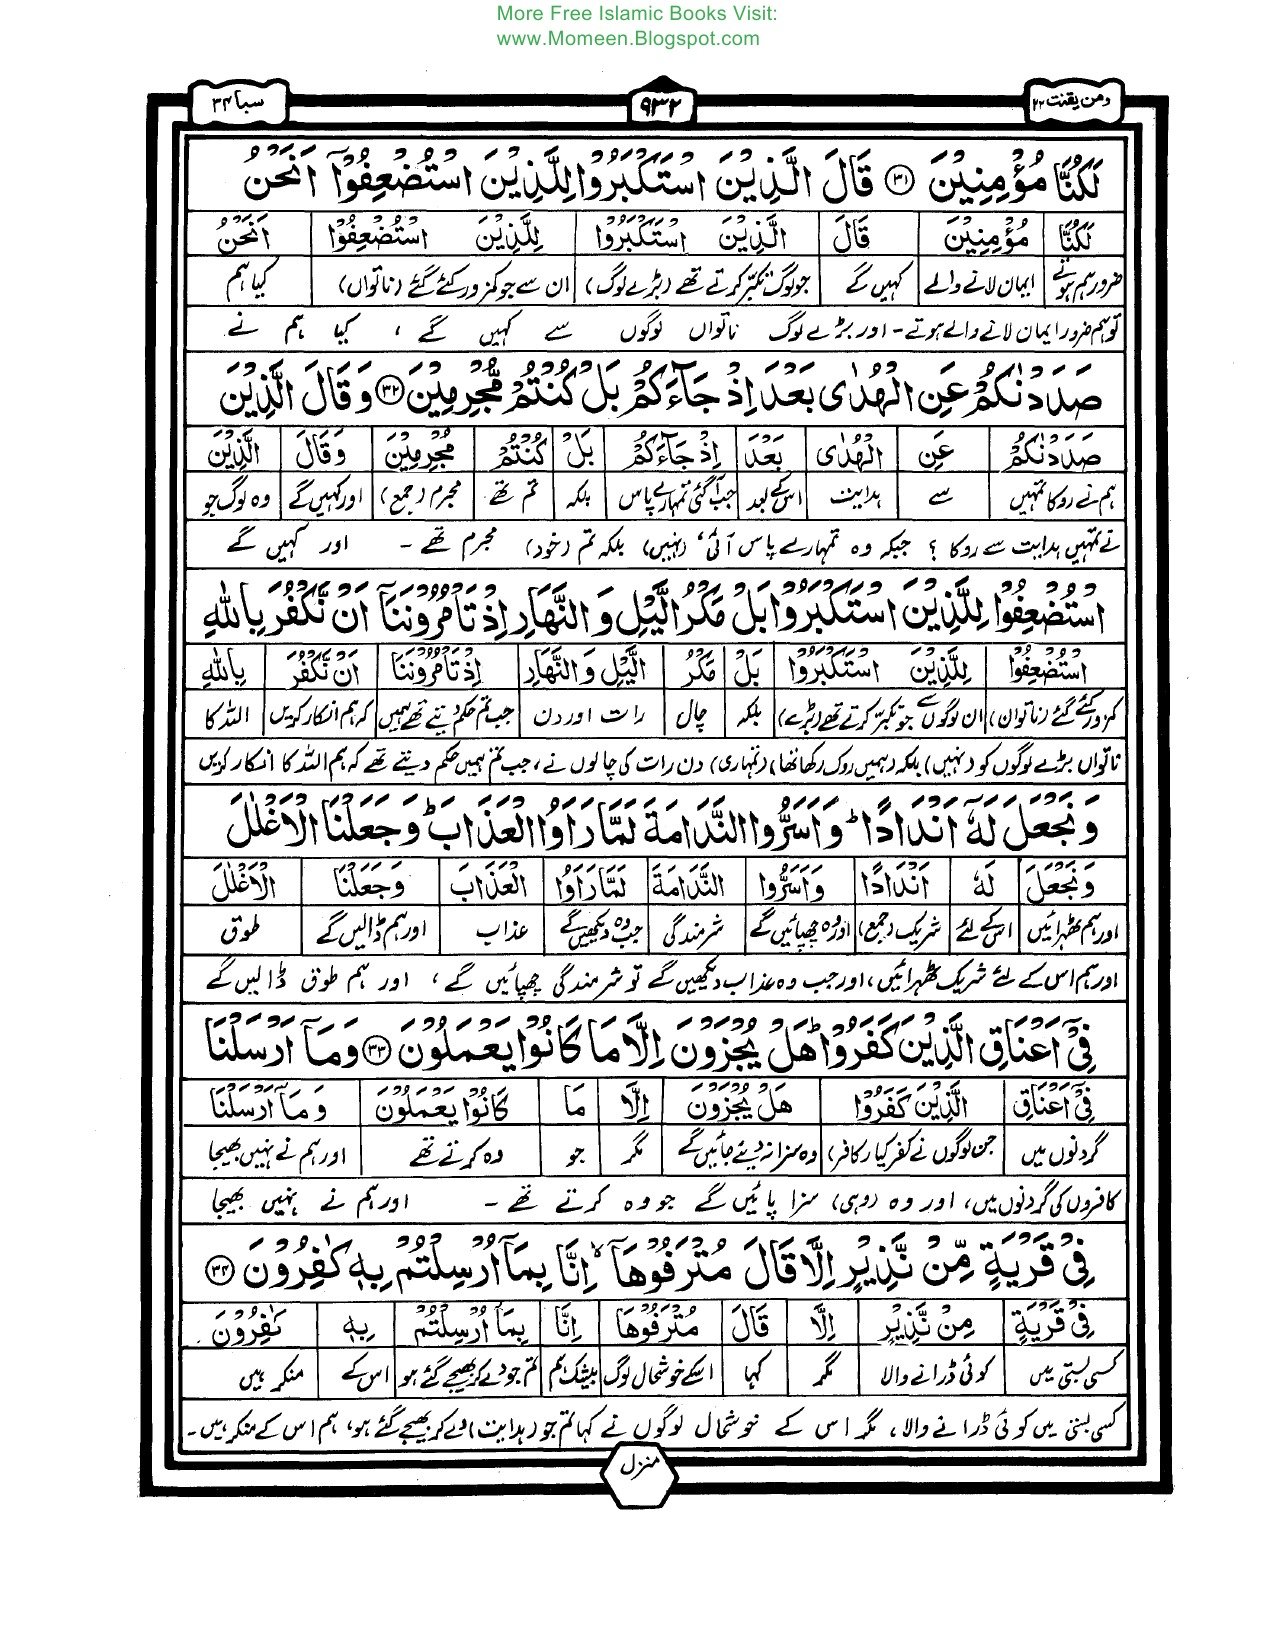 More Free Islamic Books Visit:
www.Momeen.Blogspot.com
ومن یقنت ۲۲ ۹۳۲ سبا ۳۴
لَكُنَّا مُؤْمِنِیْنَ ۝۳۱ قَالَ الَّذِیْنَ اسْتَكْبَرُوْا لِلَّذِیْنَ اسْتُضْعِفُوْۤا اَنَحْنُ
لَكُنَّا مُؤْمِنِیْنَ قَالَ الَّذِیْنَ اسْتَكْبَرُوْا لِلَّذِیْنَ اسْتُضْعِفُوْۤا اَنَحْنُ
ضرور ہم ہوتے ایمان لانے والے کہیں گے جو لوگ تکبر کرتے تھے (بڑے لوگ) ان سے جو کمزور کئے گئے (ناتواں) کیا ہم
تو ہم ضرور ایمان لانے والے ہوتے۔ اور بڑے لوگ ناتواں لوگوں سے کہیں گے، کیا ہم نے
صَدَدْنٰكُمْ عَنِ الْهُدٰی بَعْدَ اِذْ جَآءَكُمْ بَلْ كُنْتُمْ مُّجْرِمِیْنَ ۝۳۲ وَ قَالَ الَّذِیْنَ
صَدَدْنٰكُمْ عَنِ الْهُدٰی بَعْدَ اِذْ جَآءَكُمْ بَلْ كُنْتُمْ مُّجْرِمِیْنَ وَقَالَ الَّذِیْنَ
ہم نے روکا تمہیں سے ہدایت اس کے بعد جب آ گئی تمہارے پاس بلکہ تم تھے مجرم (جمع) اور کہیں گے وہ لوگ جو
نے تمہیں ہدایت سے روکا ؟ جبکہ وہ تمہارے پاس آئی، (نہیں) بلکہ تم (خود) مجرم تھے۔ اور کہیں گے
اسْتُضْعِفُوْا لِلَّذِیْنَ اسْتَكْبَرُوْا بَلْ مَكْرُ الَّیْلِ وَ النَّهَارِ اِذْ تَاْمُرُوْنَنَاۤ اَنْ نَّكْفُرَ بِاللّٰهِ
اسْتُضْعِفُوْا لِلَّذِیْنَ اسْتَكْبَرُوْا بَلْ مَكْرُ الَّیْلِ وَالنَّهَارِ اِذْ تَاْمُرُوْنَنَا اَنْ نَّكْفُرَ بِاللّٰهِ
کمزور کئے گئے (ناتواں) ان لوگوں سے جو تکبر کرتے تھے (بڑے) بلکہ چال رات اور دن جب تم حکم دیتے تھے ہمیں کہ ہم انکار کریں اللہ کا
ناتواں بڑے لوگوں کو (نہیں) بلکہ (ہمیں روک رکھا تھا) (تمہاری) دن رات کی چالوں نے، جب تم ہمیں حکم دیتے تھے کہ ہم اللہ کا انکار کریں
وَ نَجْعَلَ لَهٗۤ اَنْدَادًا ؕ وَ اَسَرُّوا النَّدَامَةَ لَمَّا رَاَوُا الْعَذَابَ ؕ وَ جَعَلْنَا الْاَغْلٰلَ
وَنَجْعَلَ لَهٗ اَنْدَادًا وَاَسَرُّوا النَّدَامَةَ لَمَّا رَاَوُا الْعَذَابَ وَجَعَلْنَا الْاَغْلٰلَ
اور ہم ٹھہرائیں اس کے لئے شریک (جمع) اور وہ چھپائیں گے شرمندگی جب وہ دیکھیں گے عذاب اور ہم ڈالیں گے طوق
اور ہم اس کے لئے شریک ٹھہرائیں، اور جب وہ عذاب دیکھیں گے تو شرمندگی چھپائیں گے، اور ہم طوق ڈالیں گے
فِیْۤ اَعْنَاقِ الَّذِیْنَ كَفَرُوْا ؕ هَلْ یُجْزَوْنَ اِلَّا مَا كَانُوْا یَعْمَلُوْنَ ۝۳۳ وَ مَاۤ اَرْسَلْنَا
فِیْۤ اَعْنَاقِ الَّذِیْنَ كَفَرُوْا هَلْ یُجْزَوْنَ اِلَّا مَا كَانُوْا یَعْمَلُوْنَ وَمَاۤ اَرْسَلْنَا
گردنوں میں جن لوگوں نے کفر کیا (کافر) وہ سزا نہ دیئے جائیں گے مگر جو وہ کرتے تھے اور ہم نے نہیں بھیجا
کافروں کی گردنوں میں، اور وہ (وہی) سزا پائیں گے جو وہ کرتے تھے۔ اور ہم نے نہیں بھیجا
فِیْ قَرْیَةٍ مِّنْ نَّذِیْرٍ اِلَّا قَالَ مُتْرَفُوْهَاۤ ۙ اِنَّا بِمَاۤ اُرْسِلْتُمْ بِهٖ كٰفِرُوْنَ ۝۳۴
فِیْ قَرْیَةٍ مِنْ نَّذِیْرٍ اِلَّا قَالَ مُتْرَفُوْهَا اِنَّا بِمَاۤ اُرْسِلْتُمْ بِهٖ كٰفِرُوْنَ
کسی بستی میں کوئی ڈرانے والا مگر کہا اسکے خوشحال لوگ بیشک ہم تم جو دے کر بھیجے گئے ہو اس کے منکر ہیں
کسی بستی میں کوئی ڈرانے والا، مگر اس کے خوشحال لوگوں نے کہا تم جو (ہدایت) دے کر بھیجے گئے ہو، ہم اس کے منکر ہیں۔
منزل